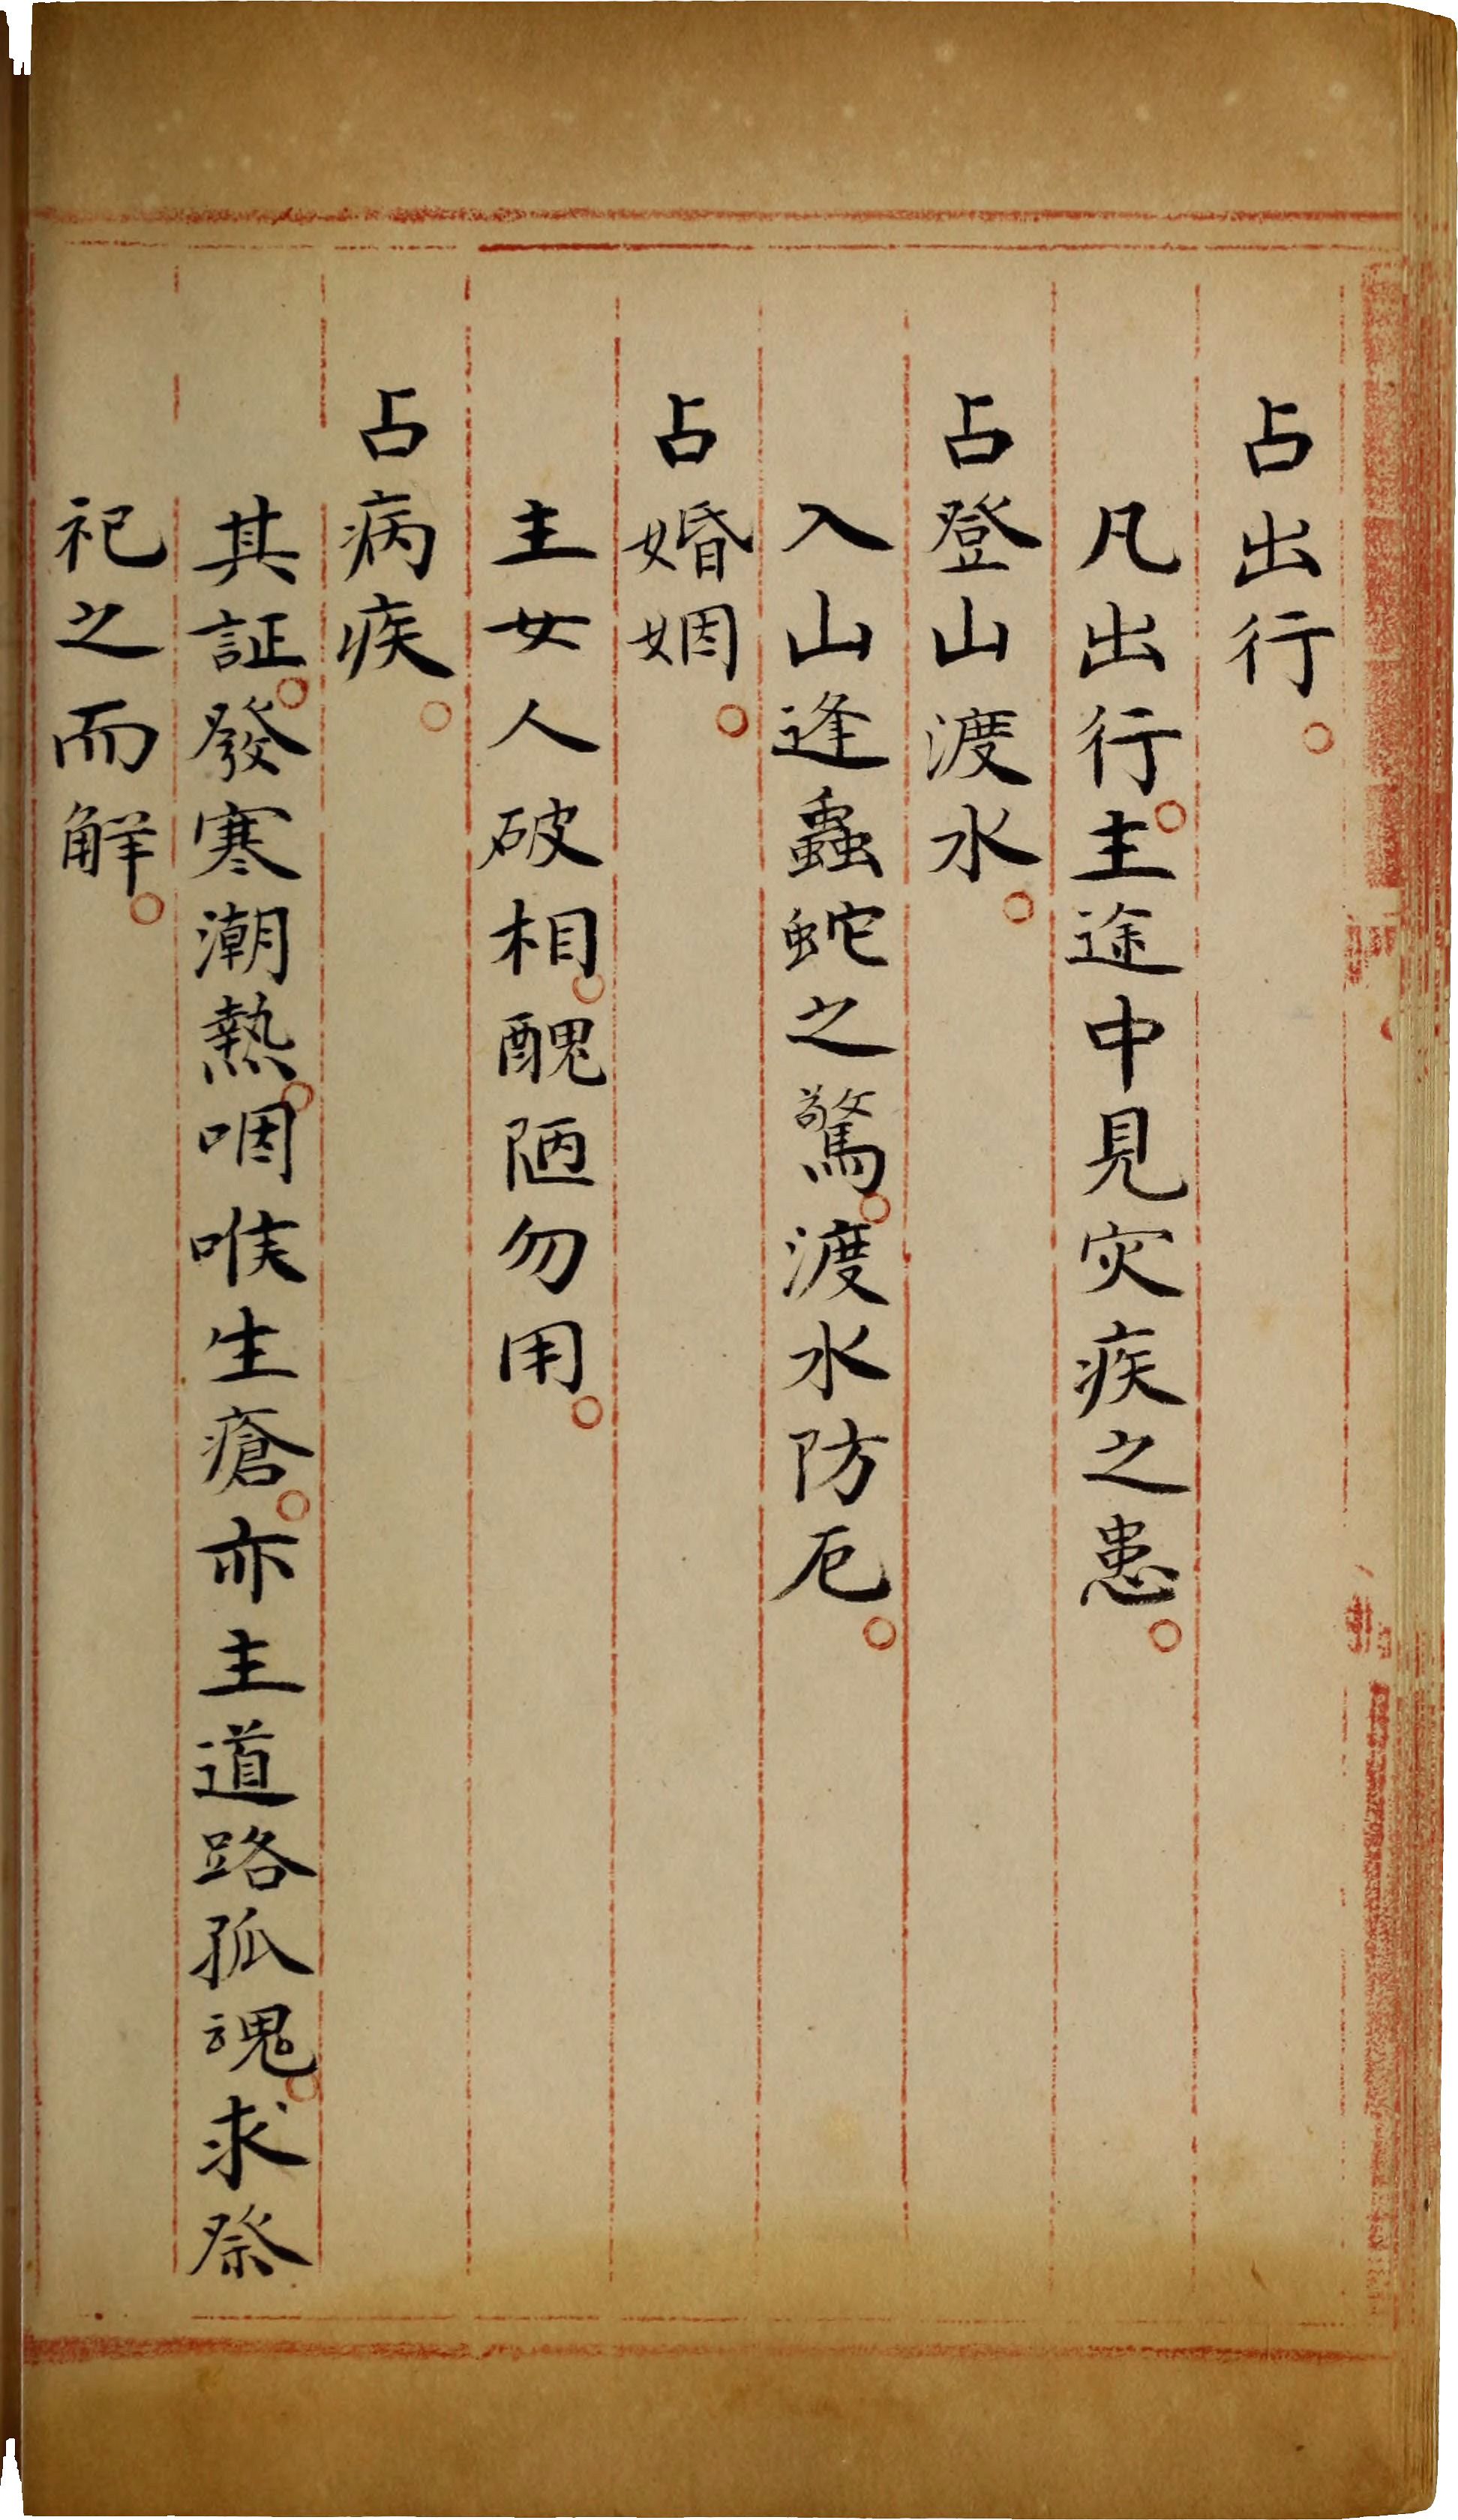 占出行。
凡出行。主途中見灾疾之患。
占登山渡水。
入山逢蟲蛇之驚。渡水防厄。
占婚姻。
主女人破相。醜陋勿用。
占病疾。
其証。發寒潮熱。咽喉生瘡。亦主道路孤魂。求祭
祀之而解。